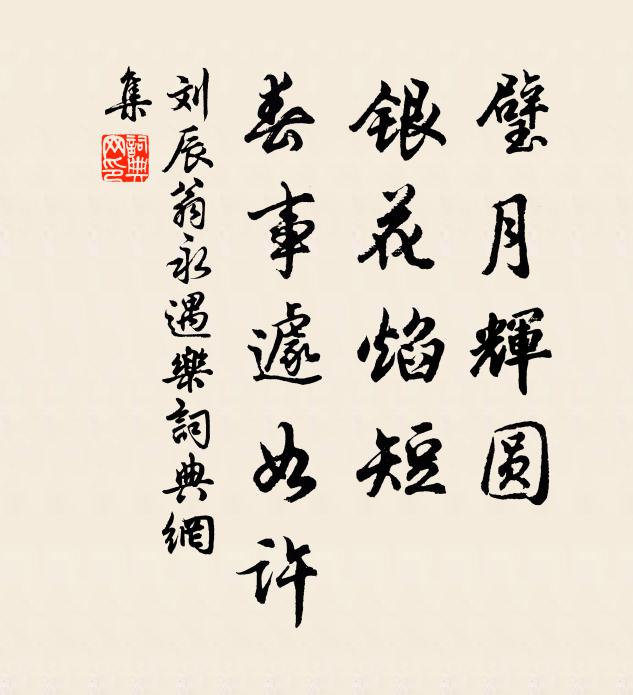 璧月輝圓
銀花焰短
春事遽如許
刘辰翁永遇樂詞典網
集
詞典網印